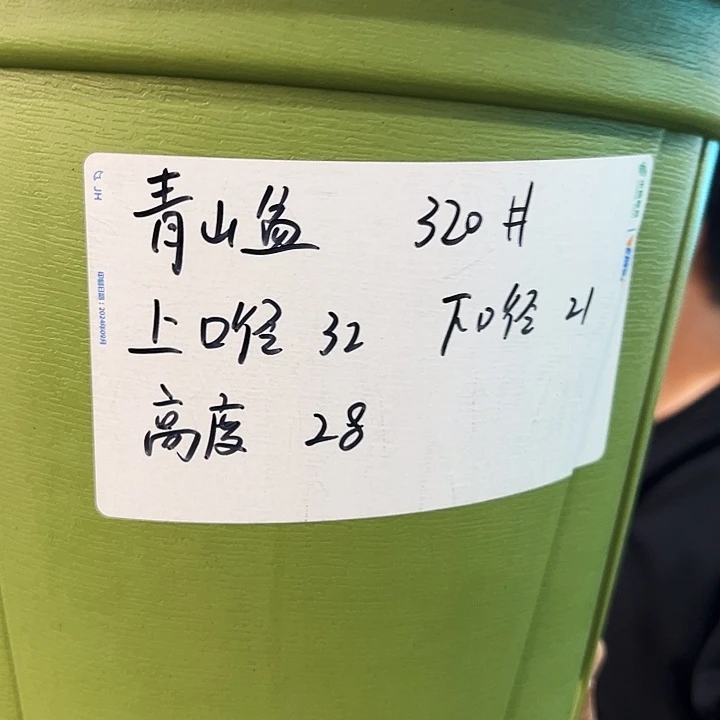 青山盆 320#
上口径 32 下口径 21
高度 28
JH